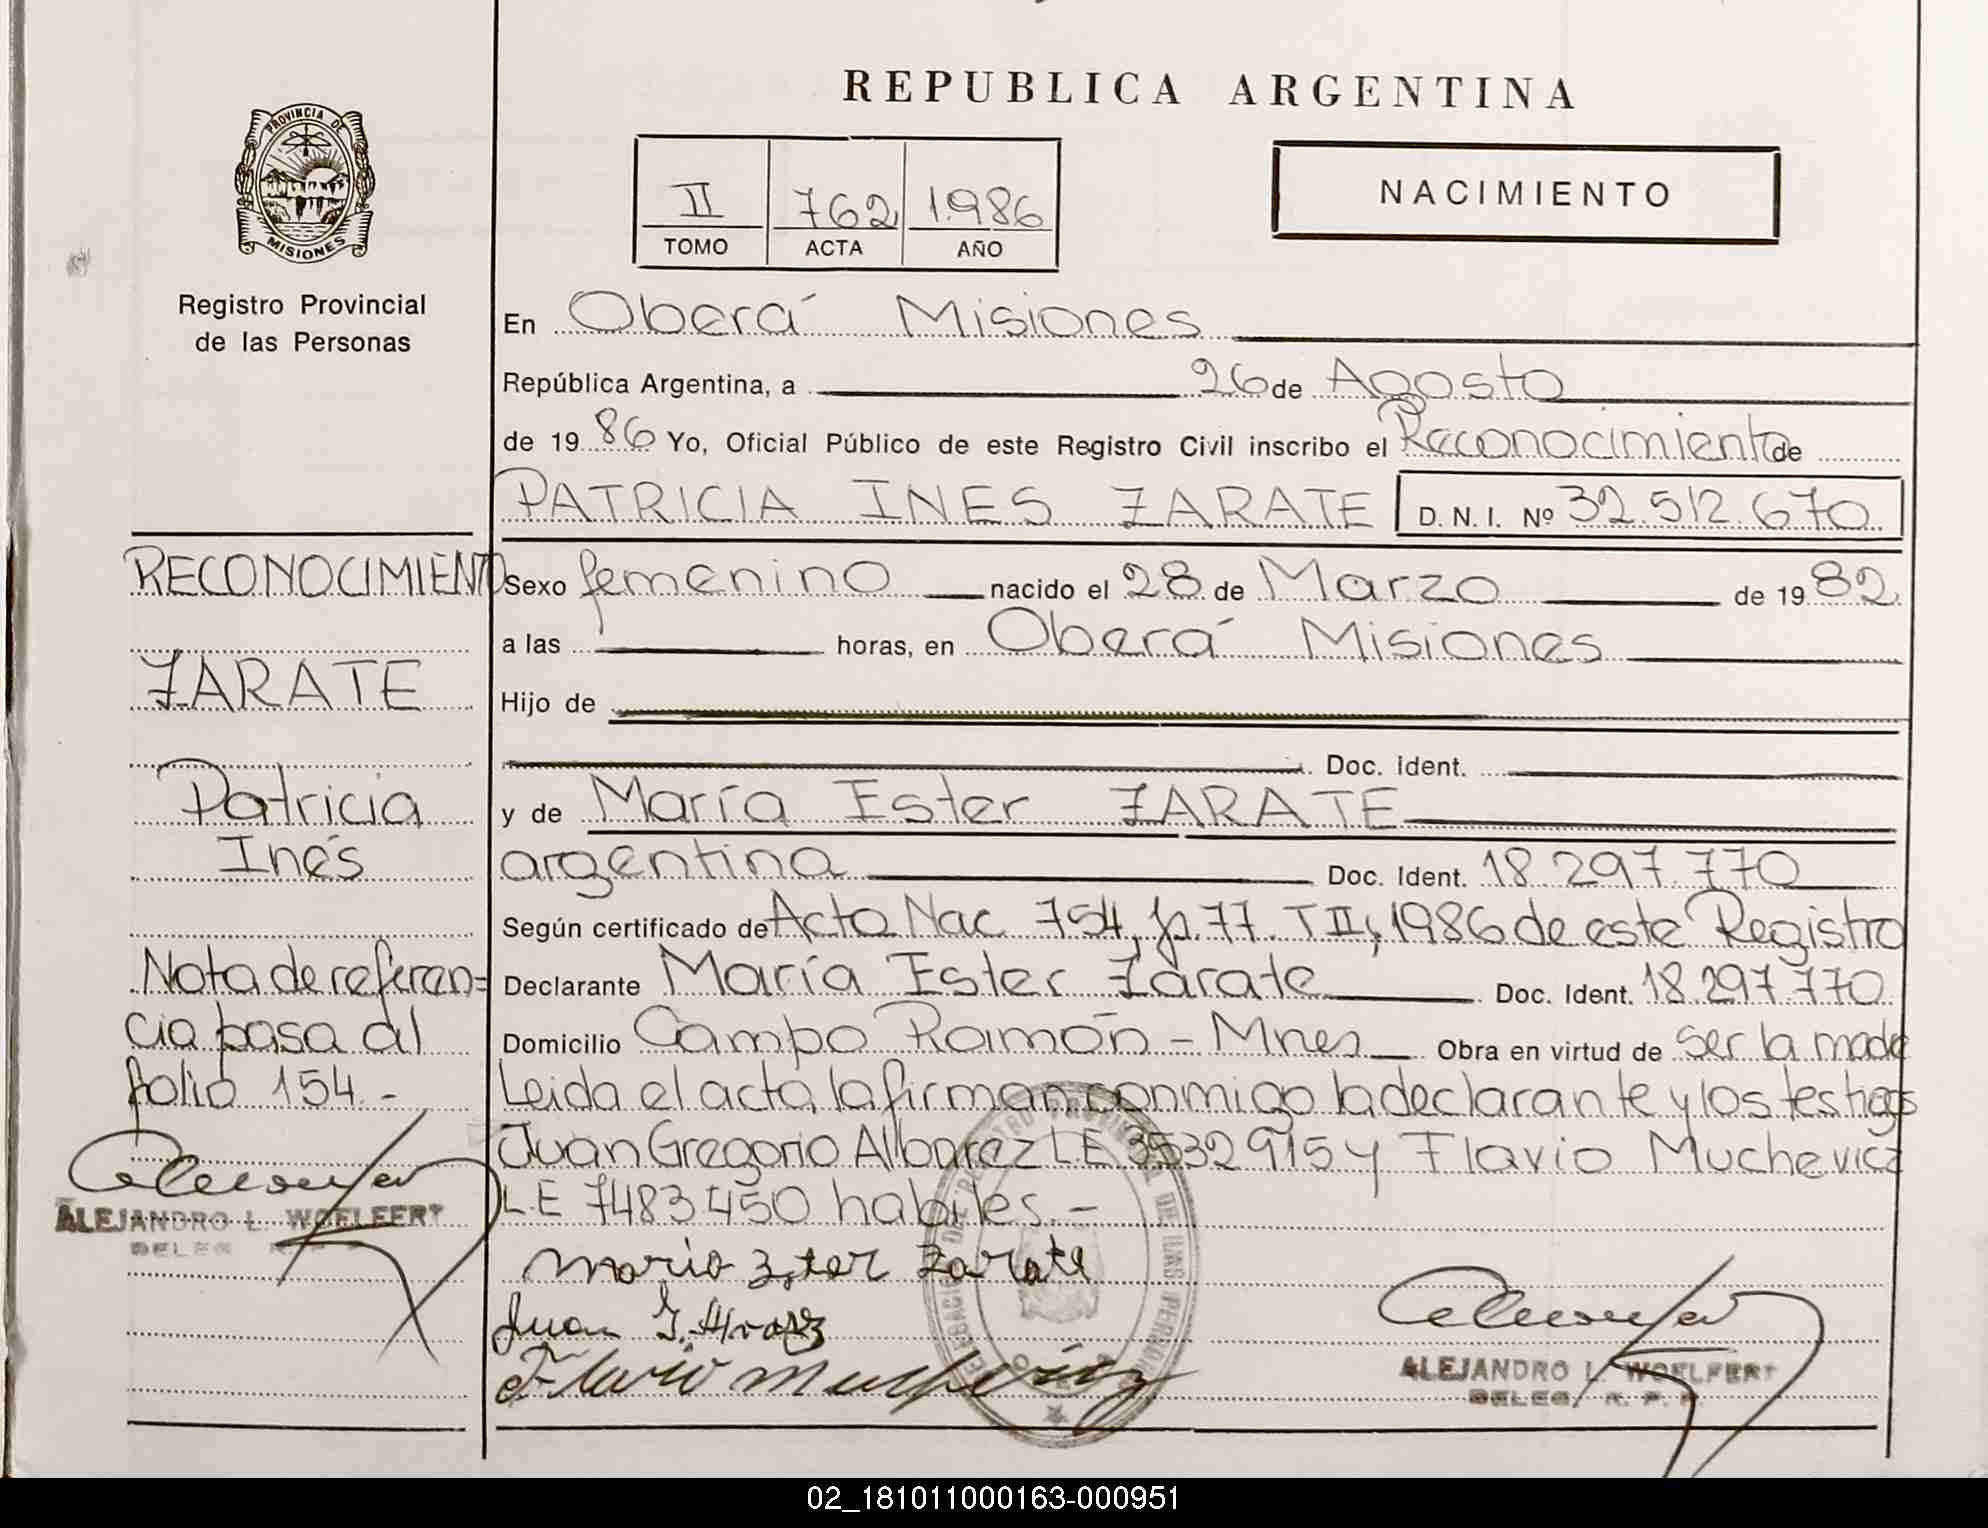 REPUBLICA ARGENTINA
PROVINCIA DE
MISIONES
Registro Provincial
de las Personas
II 762 1.986
TOMO ACTA AÑO
NACIMIENTO
En Oberá Misiones
República Argentina, a 26 de Agosto
de 19 86 Yo, Oficial Público de este Registro Civil inscribo el Reconocimiento de
PATRICIA INES ZARATE D.N.I. Nº 32.512.670
Sexo femenino nacido el 28 de Marzo de 19 82
a las horas, en Oberá Misiones
Hijo de
Doc. Ident.
y de María Ester ZARATE
argentina Doc. Ident. 18.297.770
Según certificado de Acta Nac 754, fº 77. T II, 1986 de este Registro
Declarante María Ester Zarate Doc. Ident. 18.297.770
Domicilio Campo Ramón - Mnes Obra en virtud de ser la madre
Leida el acta, la firman conmigo la declarante y los testigos
Juan Gregorio Albarez L.E 3532915 y Flavio Muchevicz
L.E 7483450 habiles.-
Maria Ester Zarate
Juan G. Alvarez
Flavio Muchevicz
ALEJANDRO L. WOELFERT
DELEG. R. P. P.
RECONOCIMIENTO
ZARATE
Patricia
Inés
Nota de referen=
cia pasa al
folio 154.-
ALEJANDRO L. WOELFERT
DELEG. R. P. P.
02_181011000163-000951